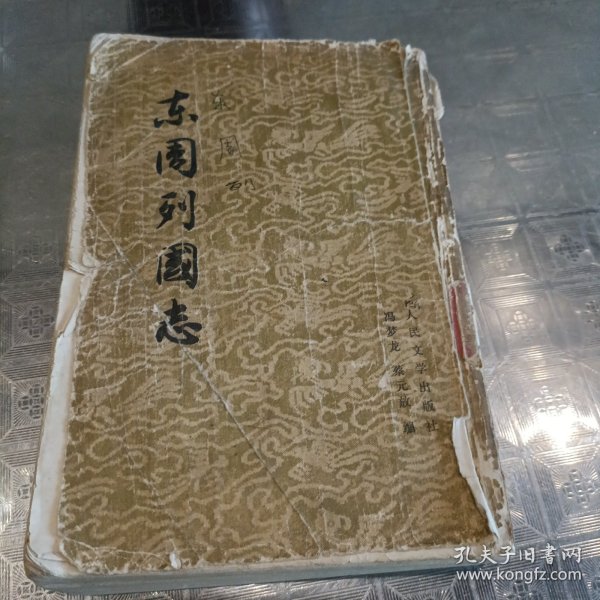 东周列國志
冯梦龙 蔡元放 编
人民文学出版社
孔夫子旧书网
www.kongfz.com